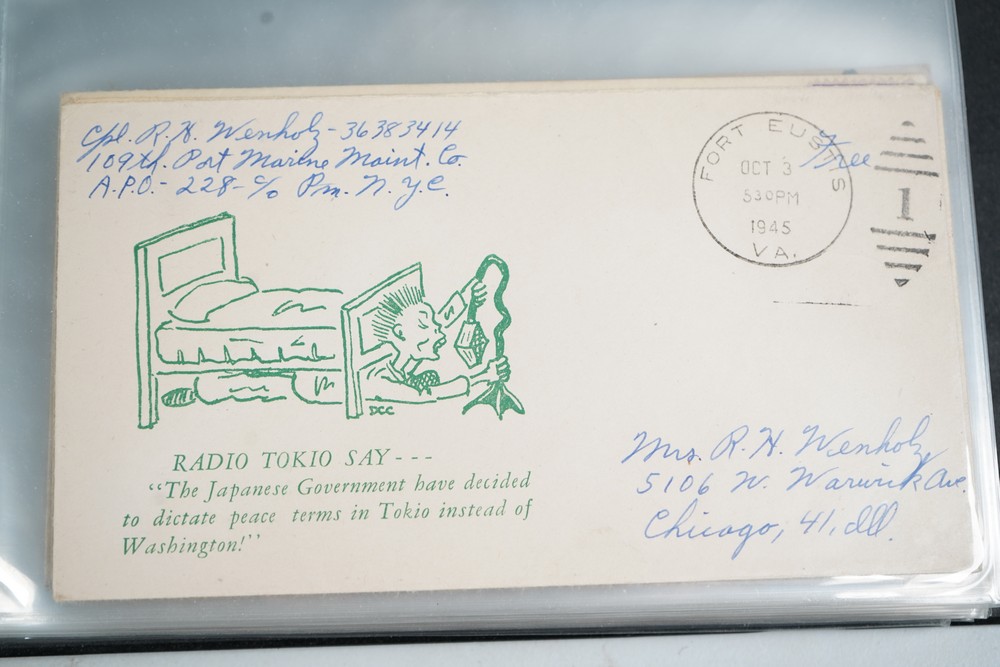 Cpl. R. H. Wenholz - 36383414
109th. Port Marine Maint. Co.
A.P.O. - 228 - c/o Pm. N.Y.C.
Free
FORT EUSTIS
OCT 3
530PM
1945
VA.
1
DCC
RADIO TOKIO SAY---
“The Japanese Government have decided
to dictate peace terms in Tokio instead of
Washington!”
Mrs. R. H. Wenholz
5106 W. Warwick Ave.
Chicago, 41, Ill.